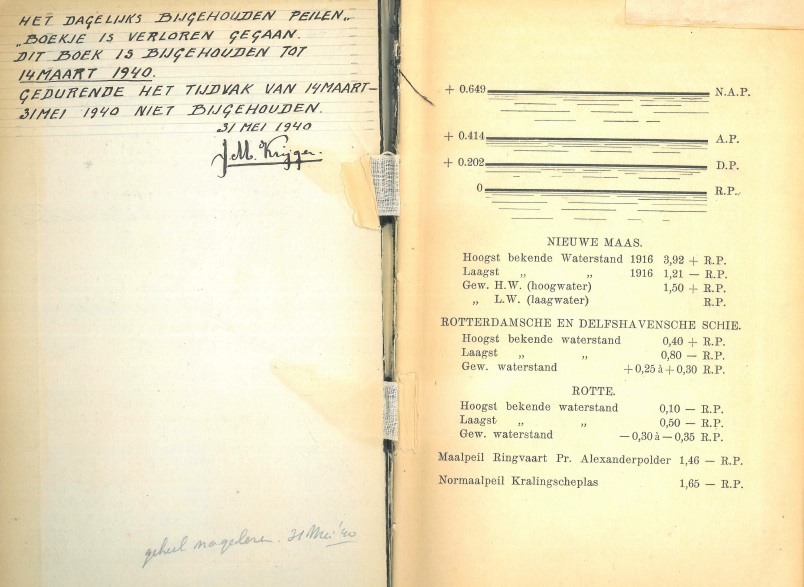 HET DAGELIJKS BIJGEHOUDEN PEILEN„
„BOEKJE IS VERLOREN GEGAAN.
DIT BOEK IS BIJGEHOUDEN TOT
14 MAART 1940.
GEDURENDE HET TIJDVAK VAN 14 MAART–
31 MEI 1940 NIET BIJGEHOUDEN.
31 MEI 1940
J.M. Krijger.
geheel nagelezen. 31 Mei '40
+ 0.649 N.A.P.
+ 0.414 A.P.
+ 0.202 D.P.
0 R.P.
NIEUWE MAAS.
Hoogst bekende Waterstand 1916 3,92 + R.P.
Laagst „ „ 1916 1,21 — R.P.
Gew. H.W. (hoogwater) 1,50 + R.P.
„ L.W. (laagwater) R.P.
ROTTERDAMSCHE EN DELFSHAVENSCHE SCHIE.
Hoogst bekende waterstand 0,40 + R.P.
Laagst „ „ 0,80 — R.P.
Gew. waterstand +0,25 à +0,30 R.P.
ROTTE.
Hoogst bekende waterstand 0,10 — R.P.
Laagst „ „ 0,50 — R.P.
Gew. waterstand —0,30 à —0,35 R.P.
Maalpeil Ringvaart Pr. Alexanderpolder 1,46 — R.P.
Normaalpeil Kralingscheplas 1,65 — R.P.